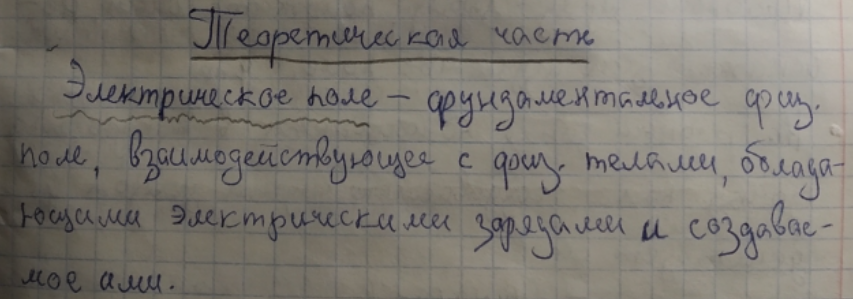 Теоретическая часть
Электрическое поле – фундаментальное физ.
поле, взаимодействующее с физ. телами, облада-
ющими электрическими зарядами и создавае-
мое ими.